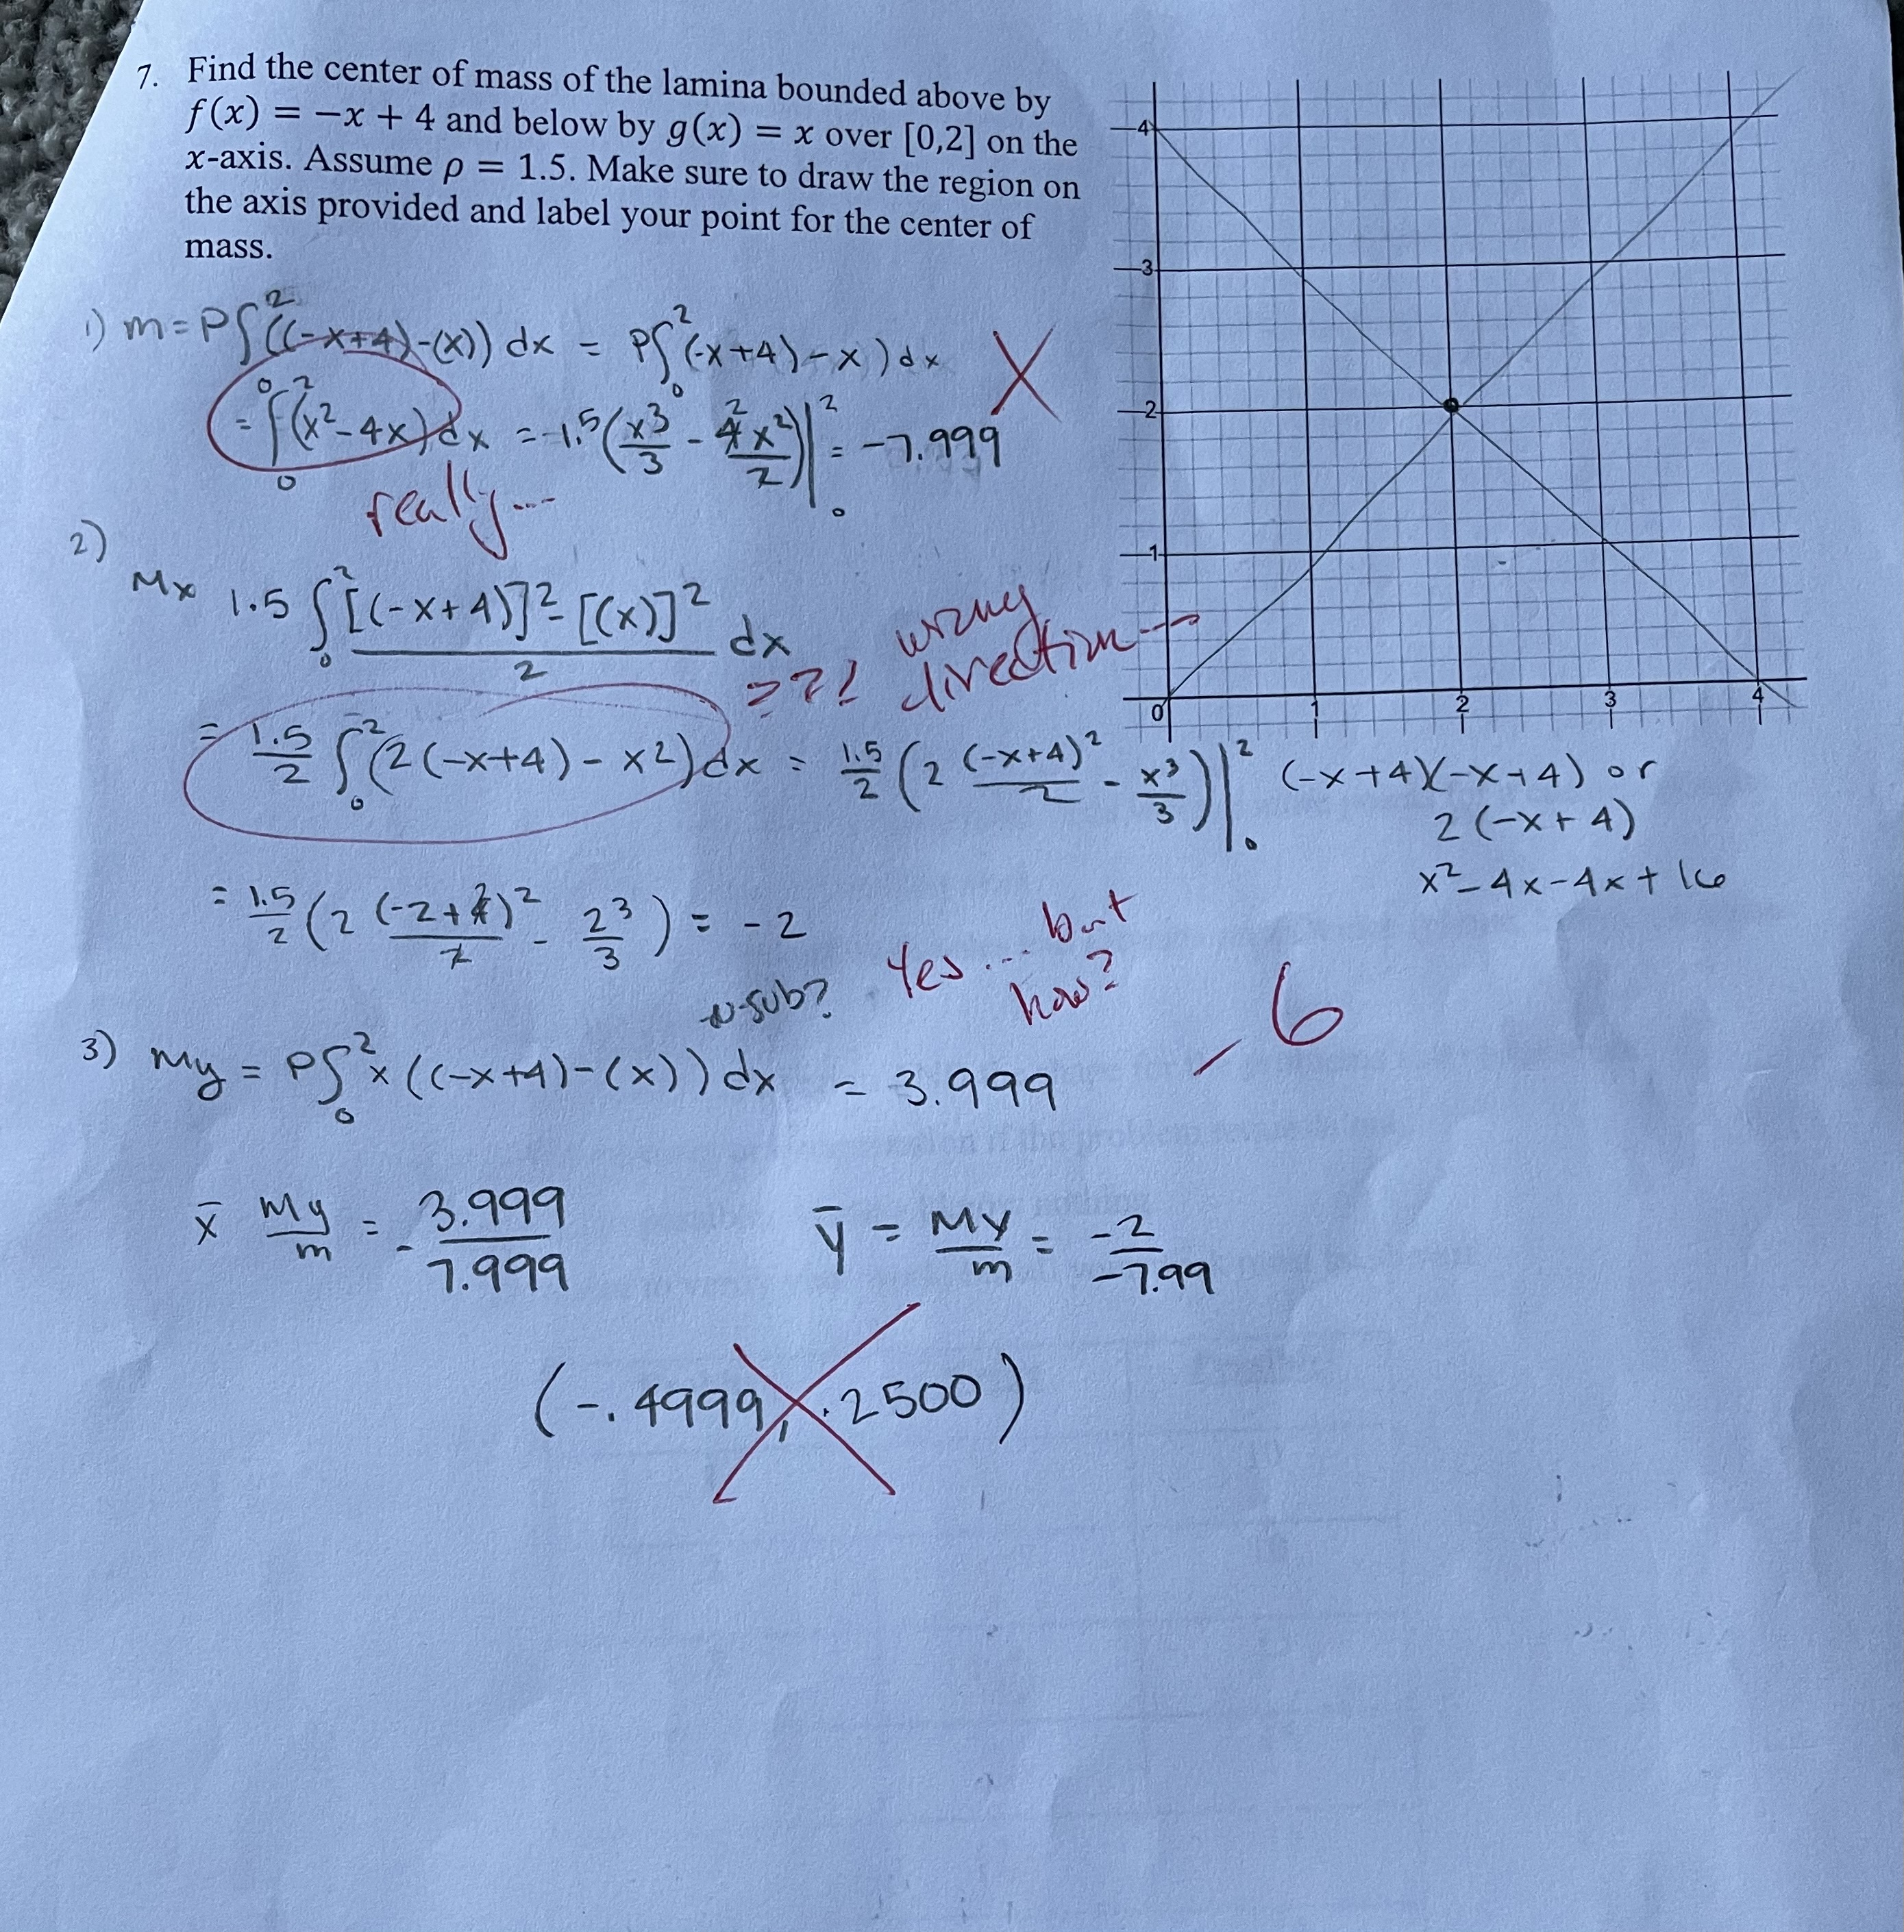 7. Find the center of mass of the lamina bounded above by
f(x) = −x + 4 and below by g(x) = x over [0,2] on the
x-axis. Assume ρ = 1.5. Make sure to draw the region on
the axis provided and label your point for the center of
mass.
4
3
2
1
0 1 2 3 4
1) m = P∫₀²((-x+4)-(x)) dx = P∫₀²(-x+4)-x) dx X
= ∫₀²(x²-4x)dx = -1.5(x³/3 - 4x²/2)|₀² = -7.999
really...
2)
Mx 1.5 ∫₀² [(-x+4)]²-[(x)]²/2 dx
=?? wrong direction
= 1.5/2 ∫₀²(2(-x+4)-x²)dx = 1.5/2 (2 (-x+4)²/2 - x³/3)|₀²
(-x+4)(-x+4) or
2(-x+4)
x²-4x-4x+16
= 1.5/2 (2 (-2+4)²/2 - 2³/3) = -2
u-sub? Yes... but how?
-6
3) My = P∫₀² x((-x+4)-(x)) dx = 3.999
x̄ My/m = - 3.999/7.999 ȳ = My/m = -2/-7.99
(-.4999, .2500)